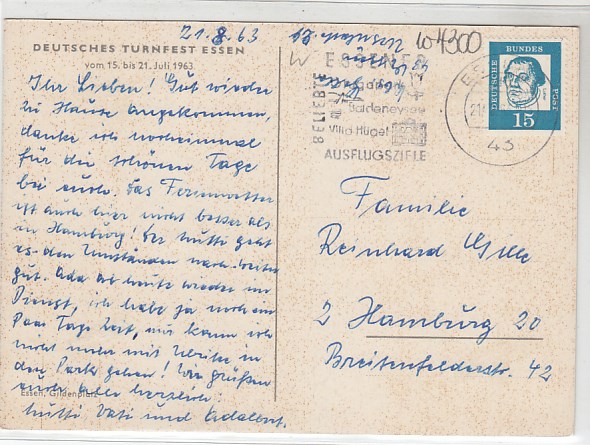 21.8.63
DEUTSCHES TURNFEST ESSEN
vom 15. bis 21. Juli 1963
Ihr Lieben! Gut wieder
zu Hause angekommen,
danke ich nocheinmal
für die schönen Tage
bei euch. Das Ferienwetter
ist auch hier nicht besser als
in Hamburg! Der Mutti geht
es den Umständen nach weiter
gut. Ada ab heute wieder im
Dienst, ich habe ja noch ein
Paar Tage Zeit, nur kann ich
nicht mehr mit Ulrike in
den Park gehen! Wir grüßen
euch alle herzlich
Mutti Vati und Adalbert.
Essen, Gildenplatz
W 4300
W
ESSENER
Baldeneysee
Villa Hügel
AUSFLUGSZIELE
43
DEUTSCHE BUNDESPOST
15
Familie
Reinhard Gille
2 Hamburg 20
Breitenfelderstr. 42